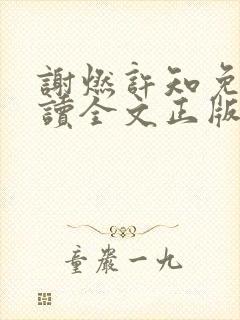 謝燃許知免
讀全文正版
童嚴一九